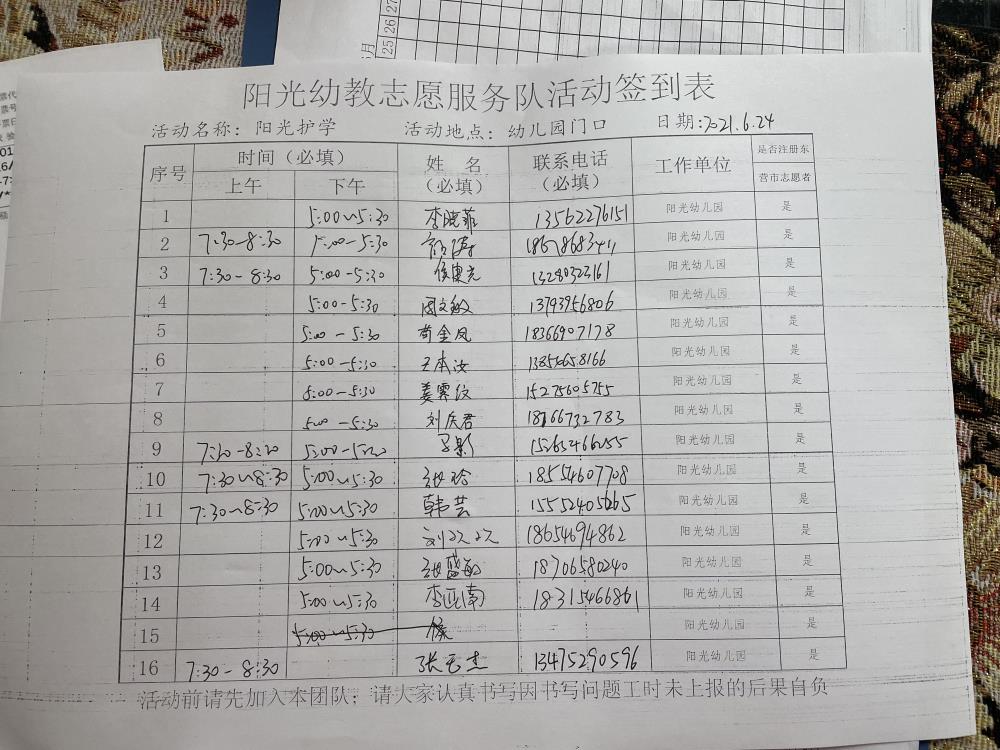 25 26 27
阳光幼教志愿服务队活动签到表
活动名称：阳光护学 活动地点：幼儿园门口 日期:2021.6.24
序号 时间（必填） 上午 下午 姓 名（必填） 联系电话（必填） 工作单位 是否注册东营市志愿者
1 5:00~5:30 李晓菲 13562276151 阳光幼儿园 是
2 7:30-8:30 5:00-5:30 阳光幼儿园 是
3 7:30-8:30 5:00-5:30 侯建光 13280323161 阳光幼儿园 是
4 5:00-5:30 周文敏 13793956806 阳光幼儿园 是
5 5:00-5:30 苟金凤 18366907178 阳光幼儿园 是
6 5:00-5:30 王本汝 阳光幼儿园 是
7 5:00-5:30 姜霁纹 15275605755 阳光幼儿园 是
8 5:00-5:30 刘庆君 18766732783 阳光幼儿园 是
9 7:30-8:30 阳光幼儿园 是
10 7:30~8:30 5:00~5:30 张玲 18554607708 阳光幼儿园 是
11 7:30~8:30 5:00~5:30 韩芸 阳光幼儿园 是
12 5:00~5:30 刘双双 18654694862 阳光幼儿园 是
13 5:00~5:30 张盛韵 18706580240 阳光幼儿园 是
14 5:00~5:30 李亚南 18315466861 阳光幼儿园 是
15 5:00~5:30 侯 阳光幼儿园 是
16 7:30-8:30 张玉杰 13475290596 阳光幼儿园 是
活动前请先加入本团队；请大家认真书写因书写问题工时未上报的后果自负